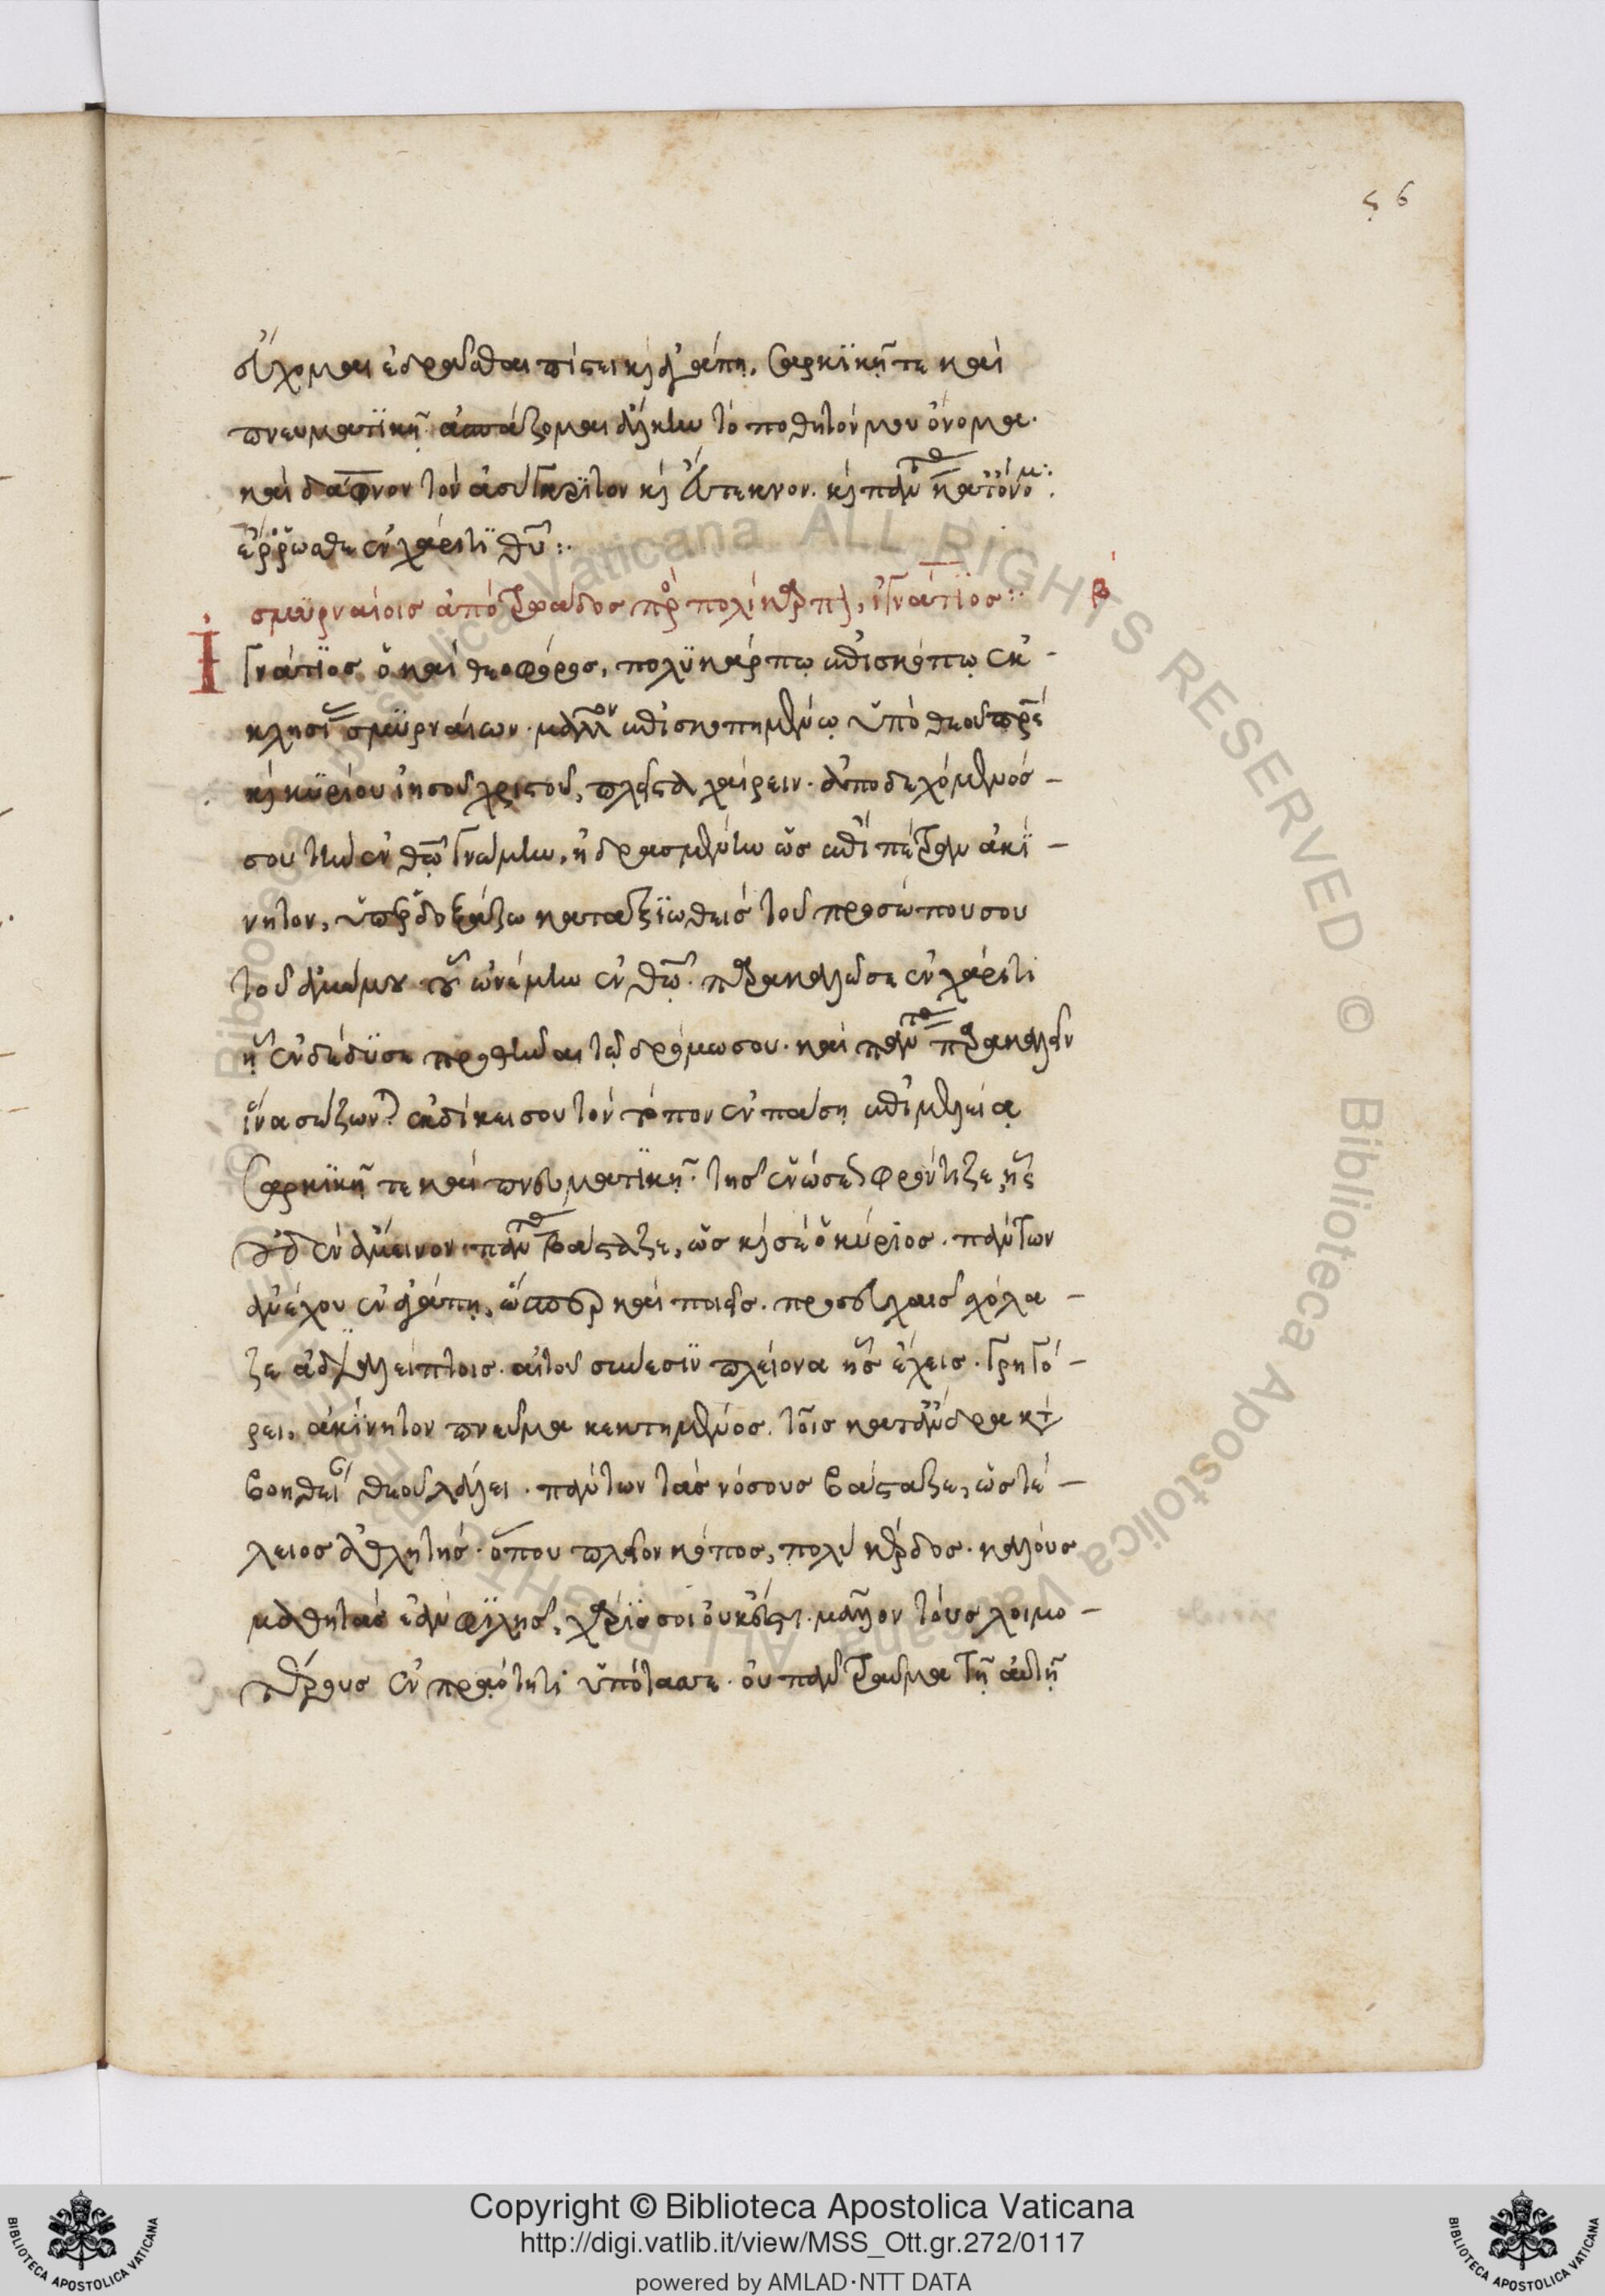 56
εὔχομαι ἑδράσθαι πίστει κὶ ἀγάπῃ, σαρκϊκῇ τε καὶ
πνευματϊκῇ ἀσπάζομαι ἄλκην τὸ ποθητόν μου ὄνομα.
καὶ δάφνον τὸν ἀσύγκρϊτον κὶ εὔτεκνον. κὶ πάντας κατ' ὄνομ:
ἔρρωσθε ἐν χάριτϊ θῦ:.
σμϋρναίοις ἀπὸ τρωάδος πρὸς πολίκαρπον, ἰγνάτϊος:
β
Ἰγνάτϊος ὁ καὶ θεοφόρος, πολϋκάρπῳ ἐπισκόπῳ ἐκ-
κλησίας σμϋρναίων. μᾶλλον ἐπισκοπημένῳ ὑπὸ θεοῦ πρς
κὶ κϋρίου ἰησοῦ χριστοῦ, πλεῖστα χαίρειν. ἀποδεχόμενός-
σου τὴν ἐν θῶ γνώμην, ἡδρασμένην ὡς ἐπὶ πέτραν ἀκί-
νητον, ὑπερδοξάζω καταξϊωθεὶς τοῦ προσώπου σου
τοῦ ἀμώμου οὗ ὠνέμην ἐν θῶ. παρακαλῶ σε ἐν χάριτι
ᾗ ἐνδέδϋσε προσθῆναι τῷ δρόμω σου. καὶ πάντας παρακαλεῖν
ἵνα σώζωνται ἐκδίκει σου τὸν τόπον ἐν πάσῃ ἐπιμελείᾳ
σαρκϊκῇ τε καὶ πνευματϊκῇ. τῆς ἑνώσεως φρόντιζε, ἧς
οὐδὲν ἄμεινον πάντας βάσταζε, ὡς κὶ σὲ ὁ κύριος. πάντων
ἀνέχου ἐν ἀγάπῃ, ὥσπερ καὶ ποιεῖς. προσευχαῖς σχόλα-
ζε ἀδϊαλείπτοις. αἰτοῦ σύνεσϊν πλείονα ἧς ἔχεις. γρηγό-
ρει, ἀκίνητον πνεῦμα κεκτημένος. τοῖς κατ' ἄνδρα κτ
βοήθειαν θεοῦ λάλει. πάντων τὰς νόσους βάσταζε, ὡς τέ-
λειος ἀθλητὴς. ὅπου πλεῖον κόπος, πολὺ κέρδος. καλοὺς
μαθητὰς ἐὰν φϊλῆς, χάρϊς σοι οὐκ ἔστι. μᾶλλον τοὺς λοιμο-
τέρους ἐν πραότητι ὑπότασσε. οὐ πᾶν τραῦμα τῇ αὐτῇ
Copyright © Biblioteca Apostolica Vaticana
http://digi.vatlib.it/view/MSS_Ott.gr.272/0117
powered by AMLAD·NTT DATA